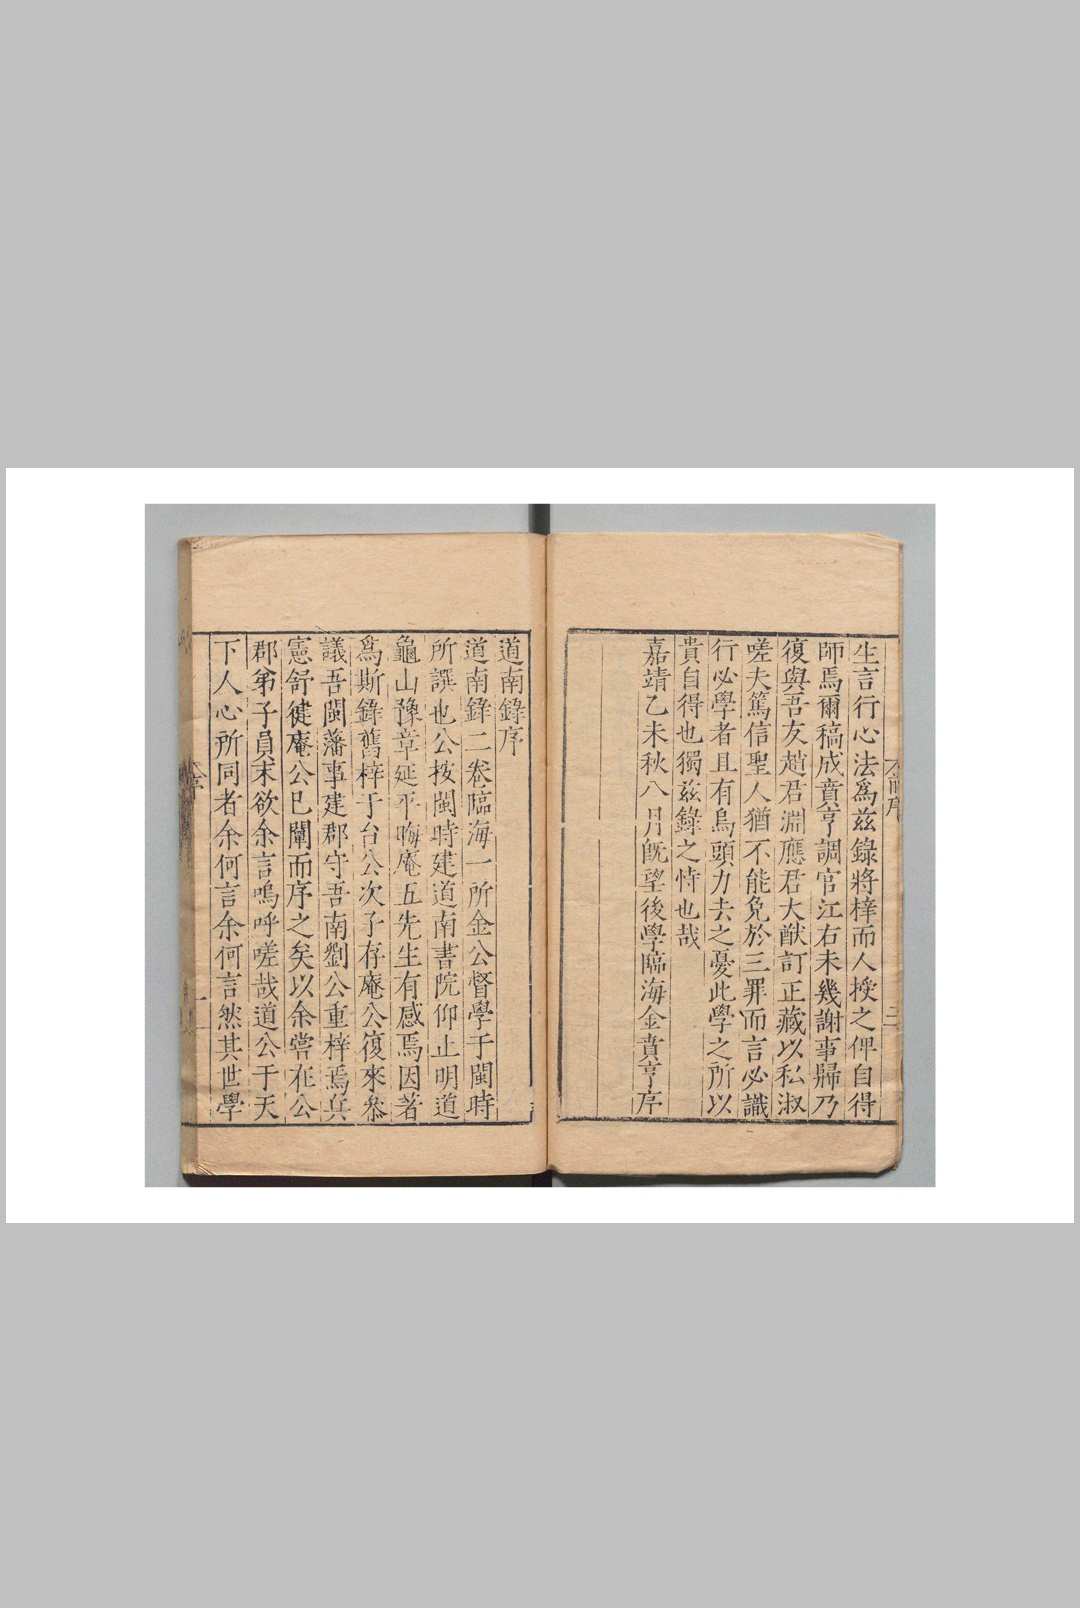 生言行心法爲茲錄將梓而人授之俾自得
師焉爾稿成賁亨調官江右未幾謝事歸乃
復與吾友趙君淵應君大猷訂正藏以私淑
嗟夫篤信聖人猶不能免於三罪而言必識
行必學者且有烏頭力去之憂此學之所以
貴自得也獨茲錄之恃也哉
嘉靖乙未秋八月旣望後學臨海金賁亨序
道南錄序
道南錄二卷臨海一所金公督學于閩時
所譔也公按閩時建道南書院仰止明道
龜山豫章延平晦庵五先生有感焉因著
爲斯錄舊梓于台公次子存庵公復來叅
議吾閩藩事建郡守吾南劉公重梓焉兵
憲舒徤庵公巳闡而序之矣以余嘗在公
郡弟子員末欲余言嗚呼嗟哉道公于天
下人心所同者余何言余何言然其世學